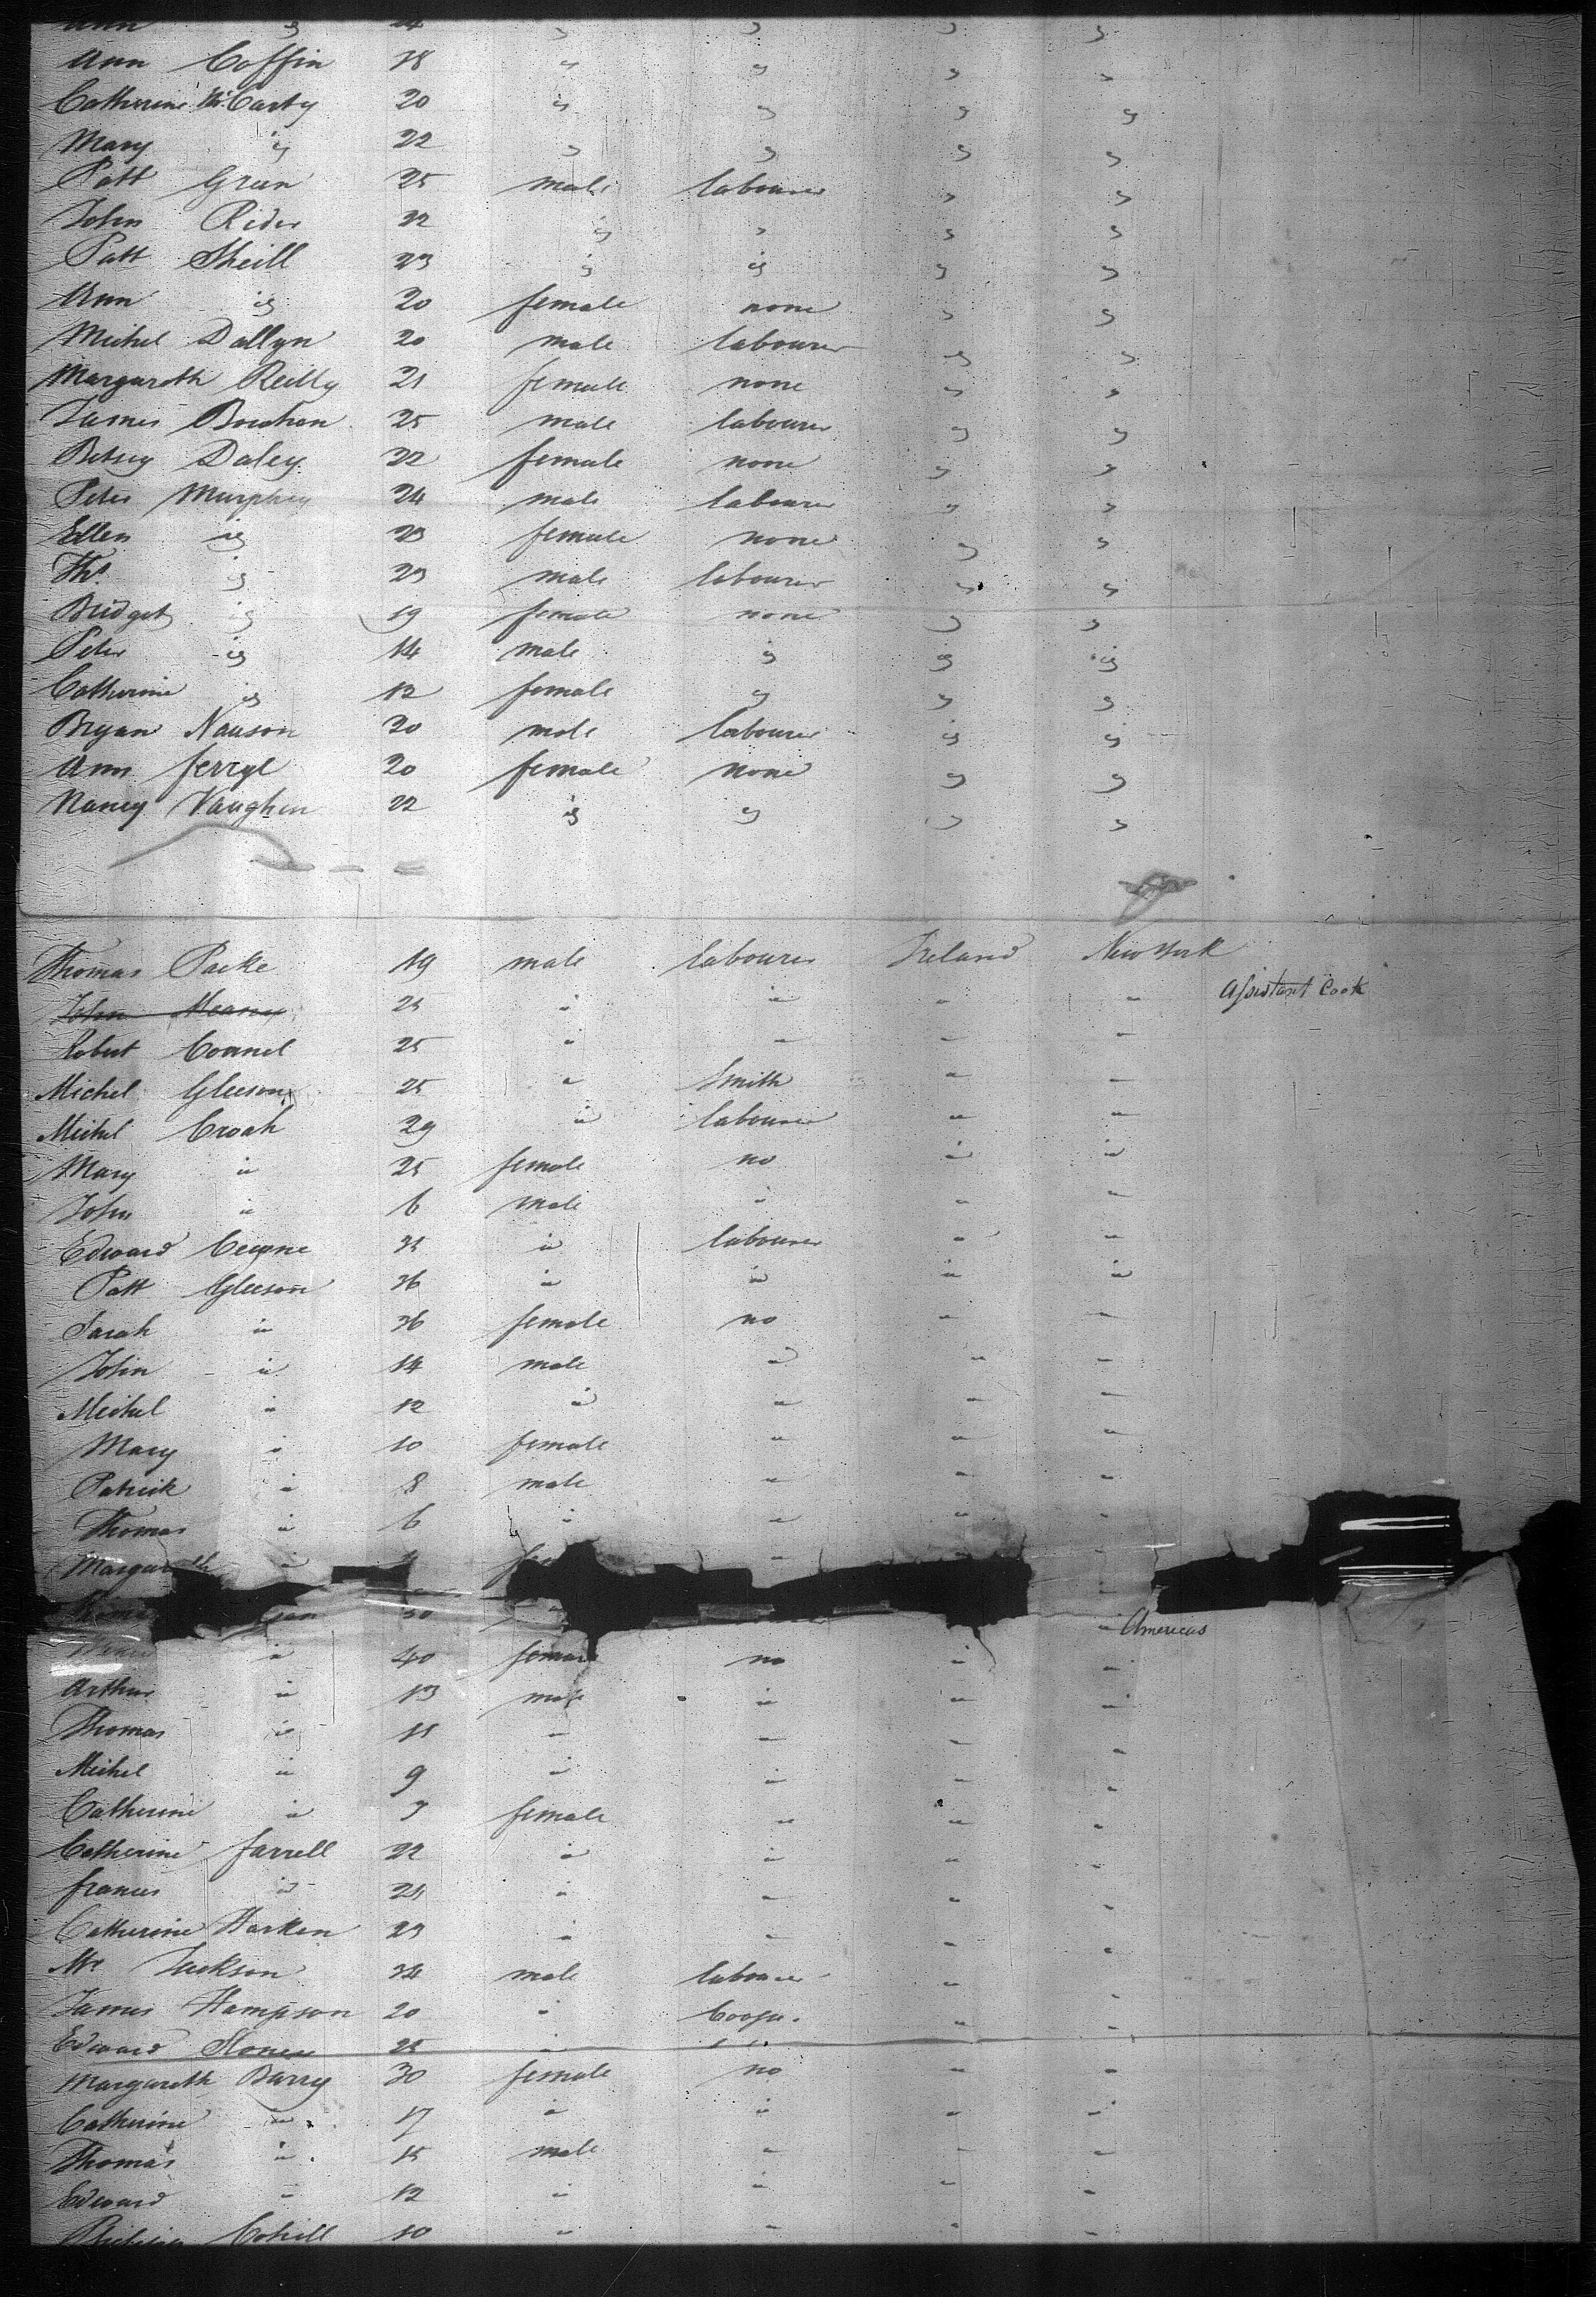 Ann " 24 " " " "
Ann Coffin 18 " " " "
Catherine McCarty 20 " " " "
Mary " 22 " " " "
Patt Green 25 male labourer " "
John Rider 22 " " " "
Patt Sheill 23 " " " "
Ann " 20 female none " "
Michel Dallyn 20 male labourer " "
Margareth Reilly 21 female none " "
James 25 male labourer " "
Betsey Daley 22 female none " "
Peter Murphey 24 male labourer " "
Ellen " 23 female none " "
Ths " 23 male labourer " "
Bridget " 19 female none " "
Peter " 14 male " " "
Catherine " 12 female " " "
Bryan Nauson 20 male labourer " "
Ann ferryl 20 female none " "
Nancy Vaughen 22 " " " "
Thomas Parke 19 male labourer Ireland New York
John Meany 25 " " " " Assistant Cook
Robert Connel 25 " " " "
Michel Gleeson 25 " Smith " "
Michel Croak 29 " labourer " "
Mary " 25 female no " "
John " 6 male " " "
Edward 31 " labourer " "
Patt Gleeson 36 " " " "
Sarah " 36 female no " "
John " 14 male " " "
Michel " 12 " " " "
Mary " 10 female " " "
Patrick " 8 male " " "
Thomas " 6 " " " "
Margareth " " "
Thomas 50 " Americas
" 40 female no " "
Arthur " 13 male " " "
Thomas " 11 " " " "
Michel " 9 " " " "
Catherine " 3 female " " "
Catherine farrell 22 " " " "
frances " 21 " " " "
Catherine Harken 23 " " " "
Mr Jackson 34 male labourer " "
James Hampson 20 " Cooper " "
Edward 25 "
Margareth Barry 30 female no " "
Catherine " 17 " " " "
Thomas " 15 male " " "
Edward " 12 " " " "
Cohill 10 " " " "